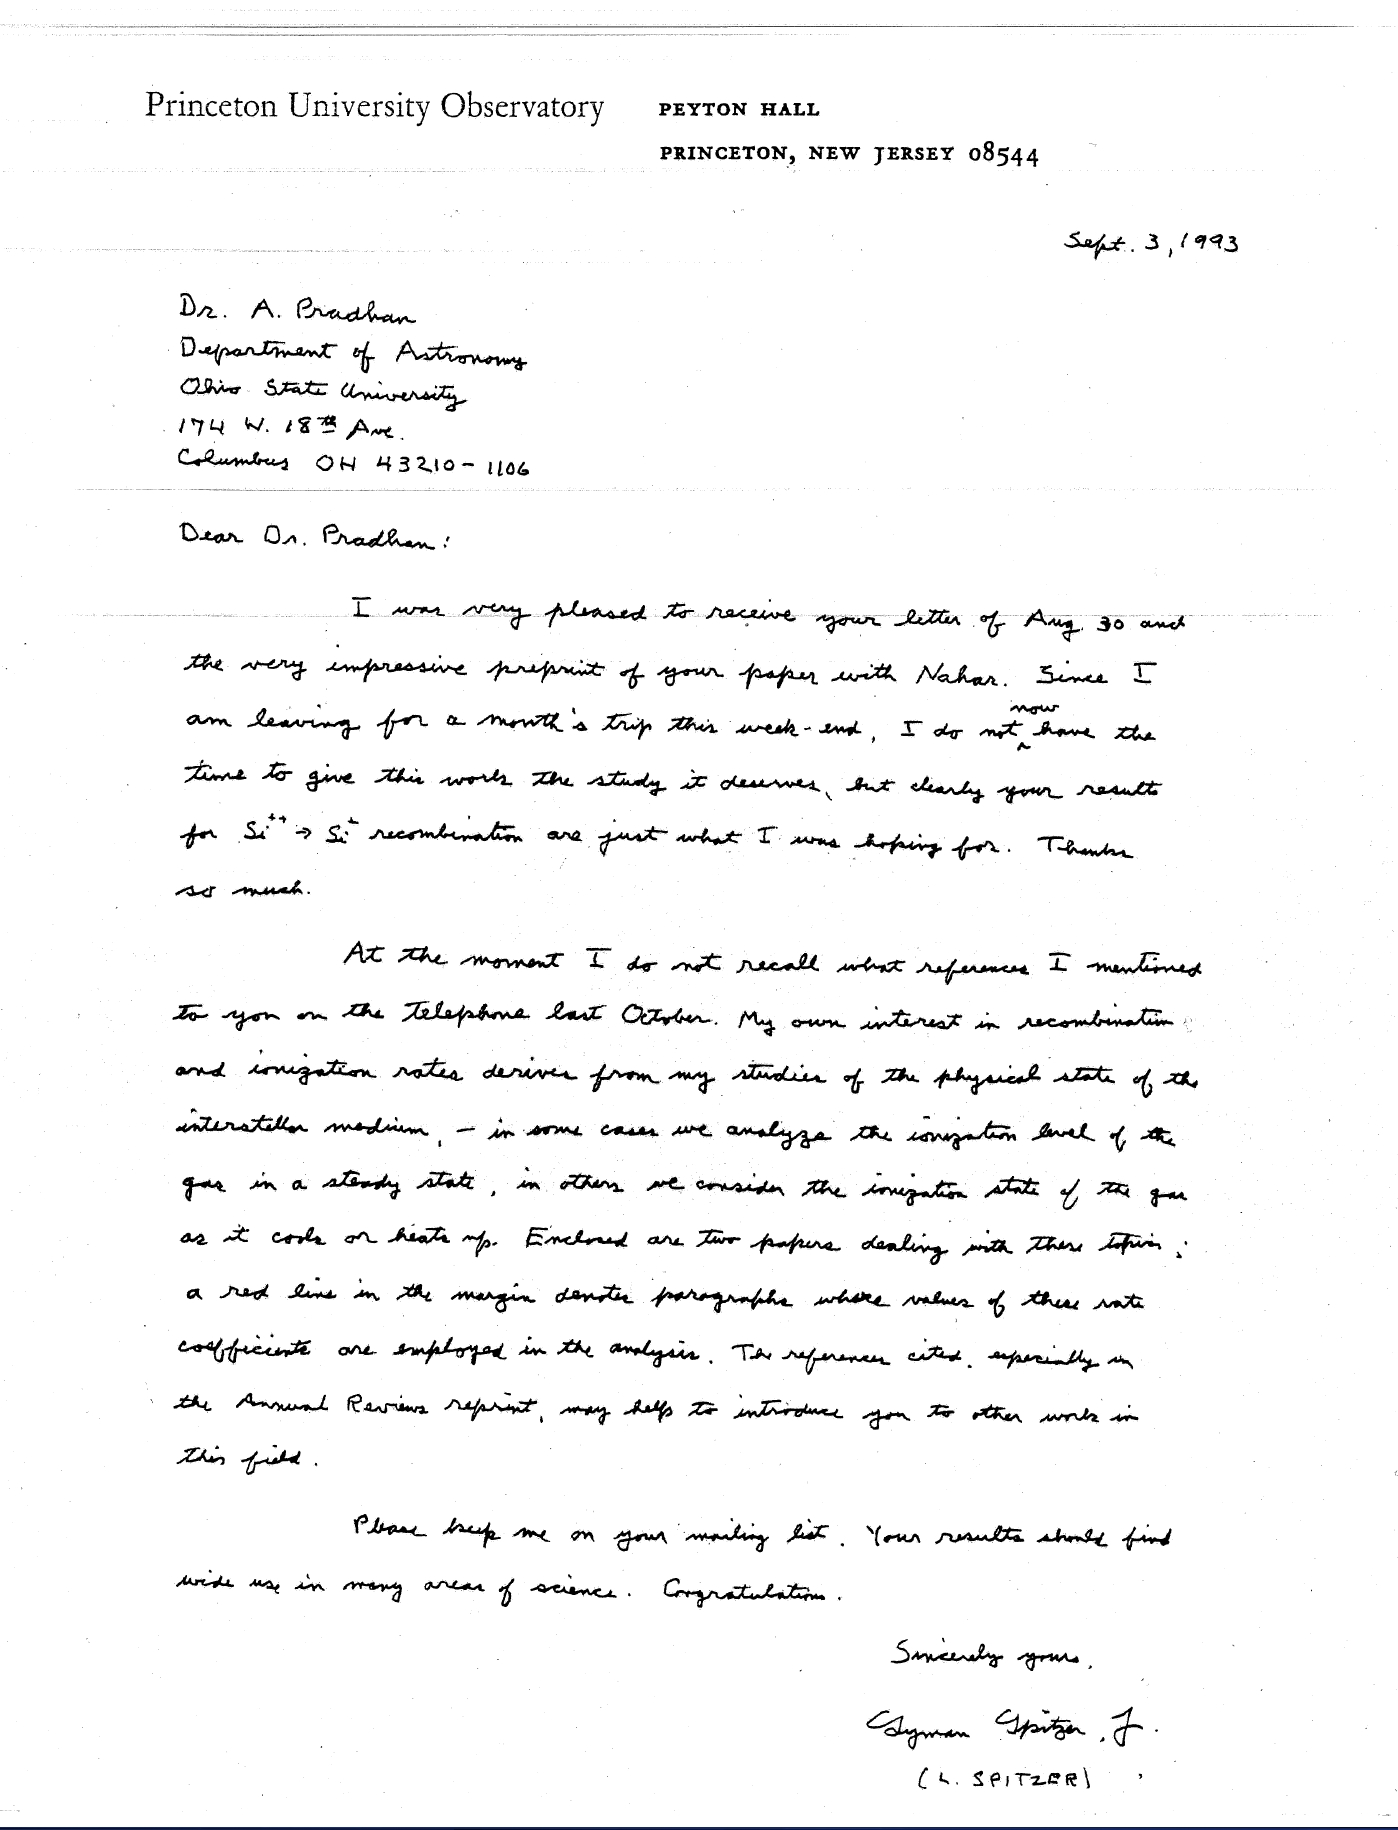 Princeton University Observatory PEYTON HALL
PRINCETON, NEW JERSEY 08544
Sept. 3, 1993
Dr. A. Pradhan
Department of Astronomy
Ohio State University
174 W. 18th Ave.
Columbus OH 43210-1106
Dear Dr. Pradhan:
I was very pleased to receive your letter of Aug. 30 and
the very impressive preprint of your paper with Nahar. Since I
am leaving for a month's trip this week-end, I do not now have the
time to give this work the study it deserves, but clearly your results
for Si++ → Si+ recombination are just what I was hoping for. Thanks
so much.
At the moment I do not recall what references I mentioned
to you on the telephone last October. My own interest in recombination
and ionization rates derives from my studies of the physical state of the
interstellar medium, – in some cases we analyze the ionization level of the
gas in a steady state, in others we consider the ionization state of the gas
as it cools or heats up. Enclosed are two papers dealing with these topics;
a red line in the margin denotes paragraphs where values of these rate
coefficients are employed in the analysis. The references cited, especially in
the Annual Reviews reprint, may help to introduce you to other work in
this field.
Please keep me on your mailing list. Your results should find
wide use in many areas of science. Congratulations.
Sincerely yours,
Lyman Spitzer, Jr.
(L. SPITZER)